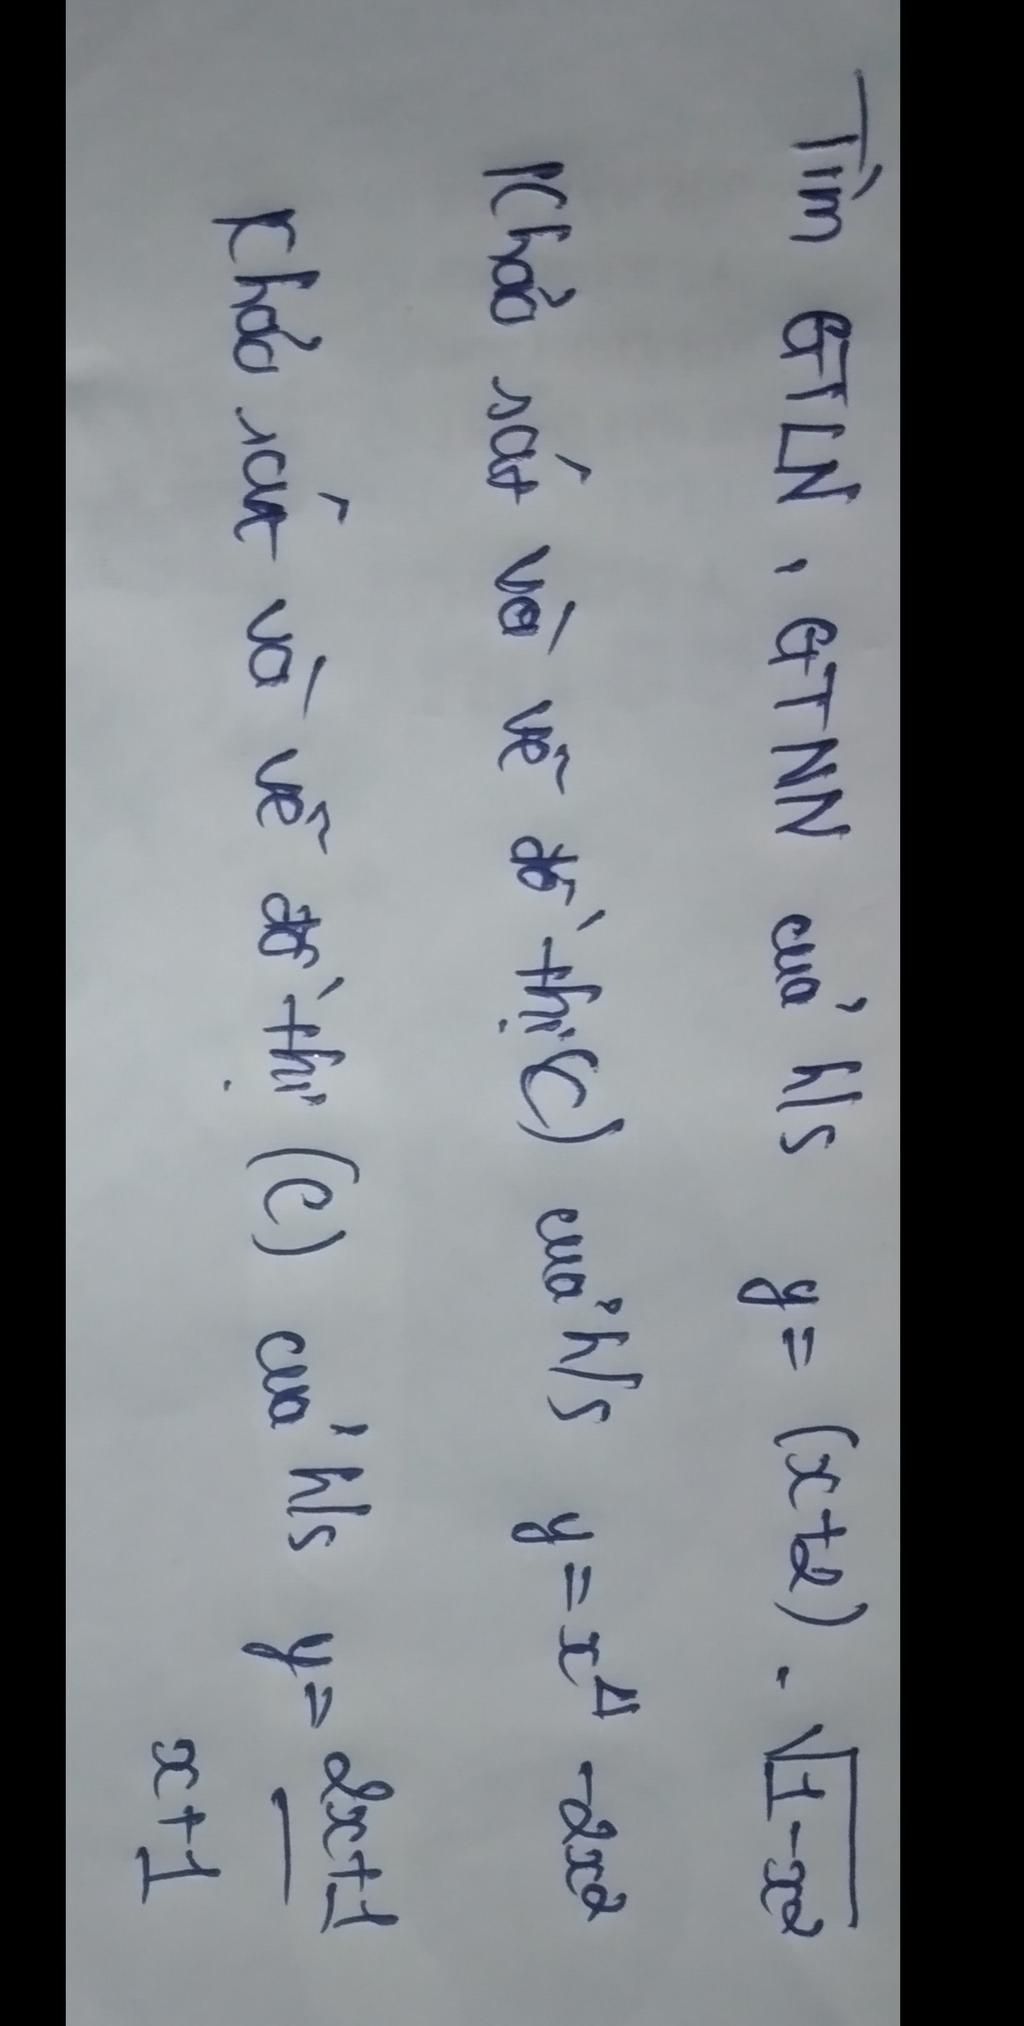 Tìm GTLN, GTNN của h/s y = (x+2).√1-x²
Khảo sát và vẽ đồ thị (C) của h/s y = x⁴ -2x²
Khảo sát và vẽ đồ thị (C) của h/s y = 2x+1
x+1